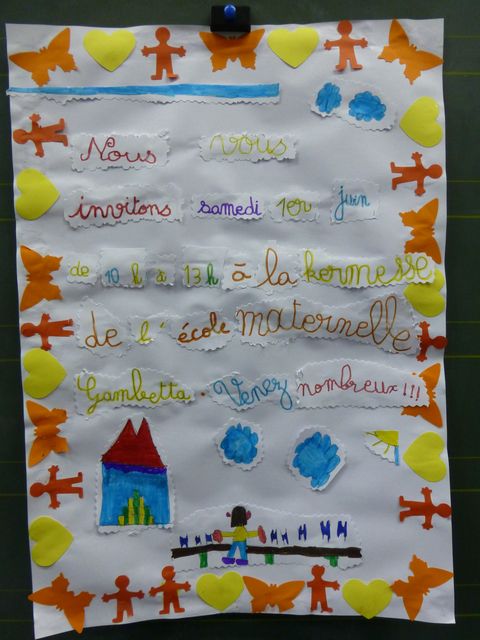 Nous vous
invitons samedi 1er juin
de 10 h à 13 h à la kermesse
de l' école maternelle
Gambetta . Venez nombreux !!!